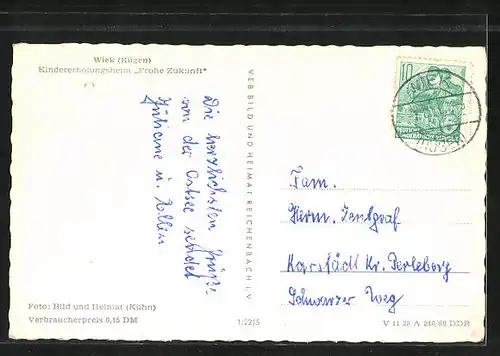 Wiek (Rügen)
Kindererholungsheim „Frohe Zukunft"
Die herzlichsten Grüße
von der Ostsee sendet
Juliane u.
VEB BILD UND HEIMAT REICHENBACH I. V.
10
WIEK
(RÜGEN)
DEUTSCHE
DEMOKRATISCHE REPUBLIK
Fam.
Herm.
Karstädt Kr. Perleberg
Schwarzer Weg
Foto: Bild und Heimat (Kühn)
Verbraucherpreis 0,15 DM
1/2215
V 11 28 A 246/60 DDR